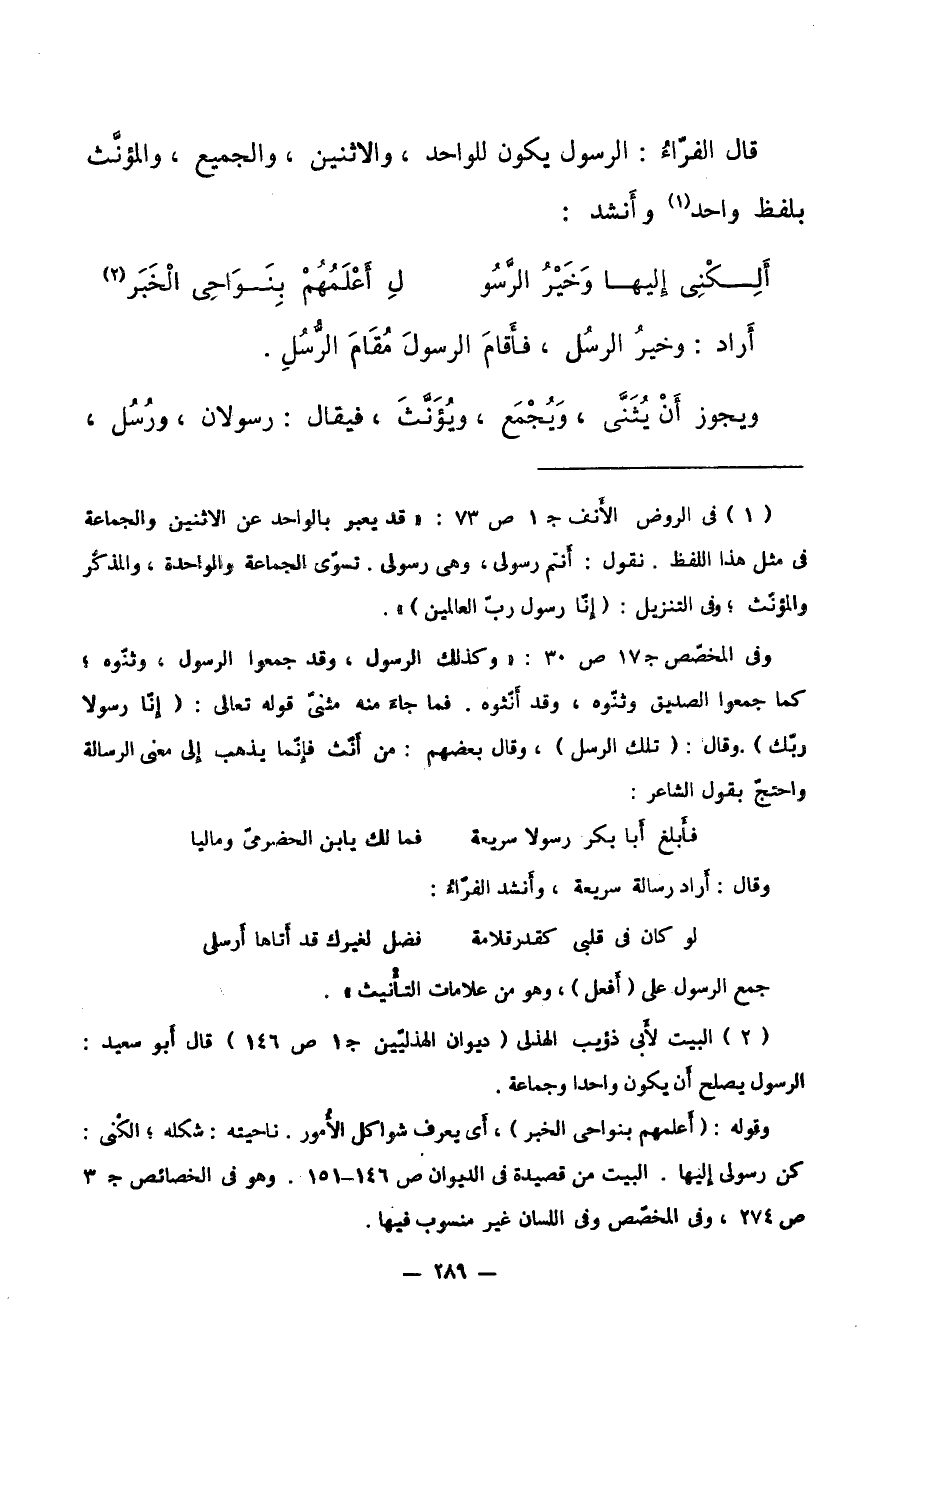 قال الفرّاءُ : الرسول يكون للواحد ، والاثنين ، والجميع ، والمؤنَّث
بلفظ واحد(١) وأَنشد :
أَلِـكْنِى إليهـا وَخَيْرُ الرَّسُو لِ أَعْلَمُهُمْ بِنَـوَاحِى الْخَبَر(٢)
أَراد : وخيرُ الرسُل ، فأَقامَ الرسولَ مُقَامَ الرُّسُلِ .
ويجوز أَنْ يُثَنَّى ، وَيُجْمَع ، ويُؤَنَّثَ ، فيقال : رسولان ، ورُسُل ،
( ١ ) فى الروض الأَنف جـ ١ ص ٧٣ : « قد يعبر بالواحد عن الاثنين والجماعة
فى مثل هذا اللفظ . نقول : أَنتم رسولى ، وهى رسولى . تسوّى الجماعة والواحدة ، والمذكّر
والمؤنّث ؛ وفى التنزيل : ( إنّا رسول ربّ العالمين ) » .
وفى المخصّص جـ ١٧ ص ٣٠ : « وكذلك الرسول ، وقد جمعوا الرسول ، وثنّوه ؛
كما جمعوا الصديق وثنّوه ، وقد أَنّثوه . فما جاءَ منه مثنىّ قوله تعالى : ( إنّا رسولا
ربّك ) .وقال : ( تلك الرسل ) ، وقال بعضهم : من أَنّث فإنّما يذهب إلى معنى الرسالة
واحتجّ بقول الشاعر :
فأَبلغ أَبا بكر رسولا سريعة فما لك يابن الحضرمىّ وماليا
وقال : أَراد رسالة سريعة ، وأَنشد الفرّاءُ :
لو كان فى قلبى كقدرقلامة فضل لغيرك قد أَتاها أَرسلى
جمع الرسول على ( أَفعل ) ، وهو من علامات التأْنيث » .
( ٢ ) البيت لأَبى ذؤيب الهذلى ( ديوان الهذليّين جـ ١ ص ١٤٦ ) قال أَبو سعيد :
الرسول يصلح أَن يكون واحدا وجماعة .
وقوله : ( أَعلمهم بنواحى الخبر ) ، أَى يعرف شواكل الأُمور . ناحيته : شكله ؛ الكْنى :
كن رسولى إليها . البيت من قصيدة فى الديوان ص ١٤٦–١٥١ . وهو فى الخصائص جـ ٣
ص ٢٧٤ ، وفى المخصّص وفى اللسان غير منسوب فيها .
— ٢٨٩ —